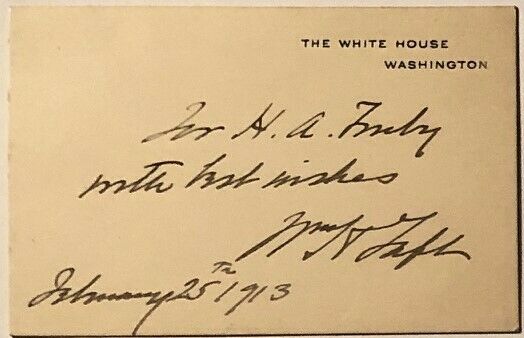 THE WHITE HOUSE
WASHINGTON
For H. A.
with best wishes
Wm H Taft
February 25th 1913